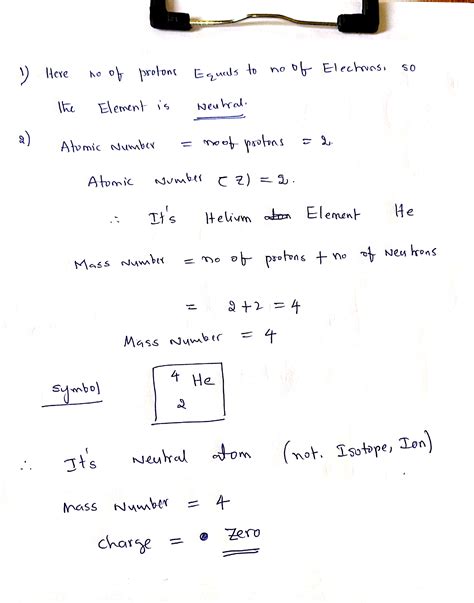 1) Here no of protons Equals to no of Electrons. so
the Element is Neutral.
2) Atomic Number = no of protons = 2.
Atomic Number (Z) = 2.
∴ It's Helium Element He
Mass Number = no of protons + no of Neutrons
= 2+2 = 4
Mass Number = 4
Symbol 4 He
2
∴ It's Neutral atom (not. Isotope, Ion)
Mass Number = 4
charge = Zero